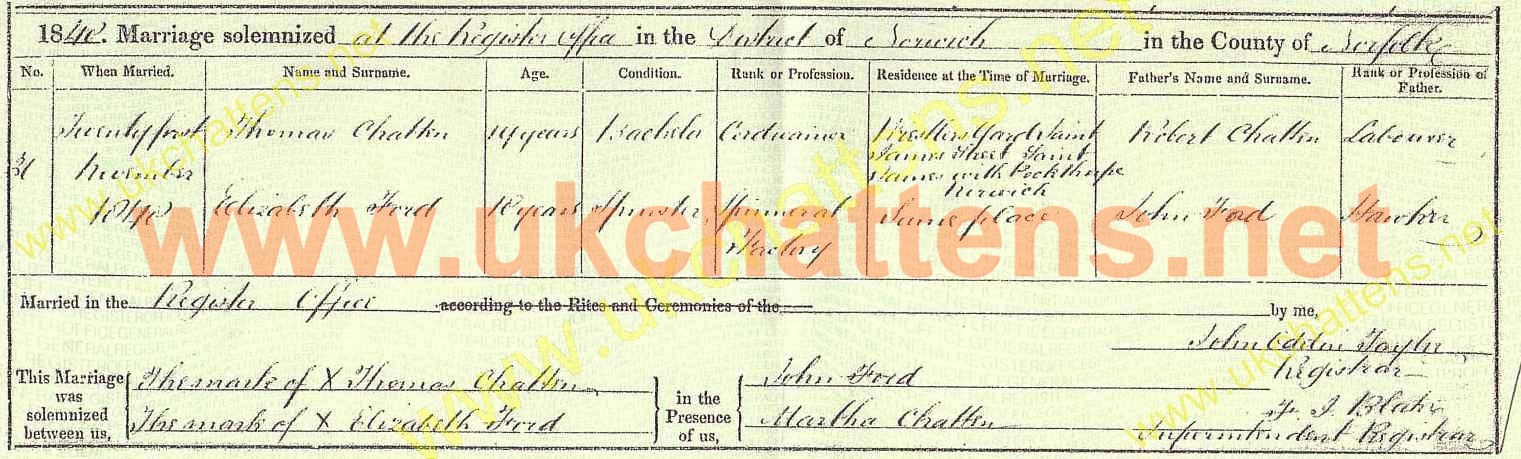 1840. Marriage solemnized at the Register Office in the District of Norwich in the County of Norfolk
No. When Married. Name and Surname. Age. Condition. Rank or Profession. Residence at the Time of Marriage. Father's Name and Surname. Rank or Profession of Father.
Twenty first Thomas Chatten 19 years Bachelor Cordwainer Wrestlers Yard Saint Robert Chatten Labourer
James Street Saint
31 November James with Pockthorpe
Norwich
1840 Elizabeth Ford 18 years Spinster Spinner at Same place John Ford Hawker
Factory
www.ukchattens.net
www.ukchattens.net
www.ukchattens.net
www.ukchattens.net
www.ukchattens.net
Married in the Register Office according to the Rites and Ceremonies of the by me,
John Taylor
Registrar
This Marriage was solemnized between us,
The mark of X Thomas Chatten
The mark of X Elizabeth Ford
in the Presence of us,
John Ford
Martha Chatten
J. Blake
Superintendent Registrar